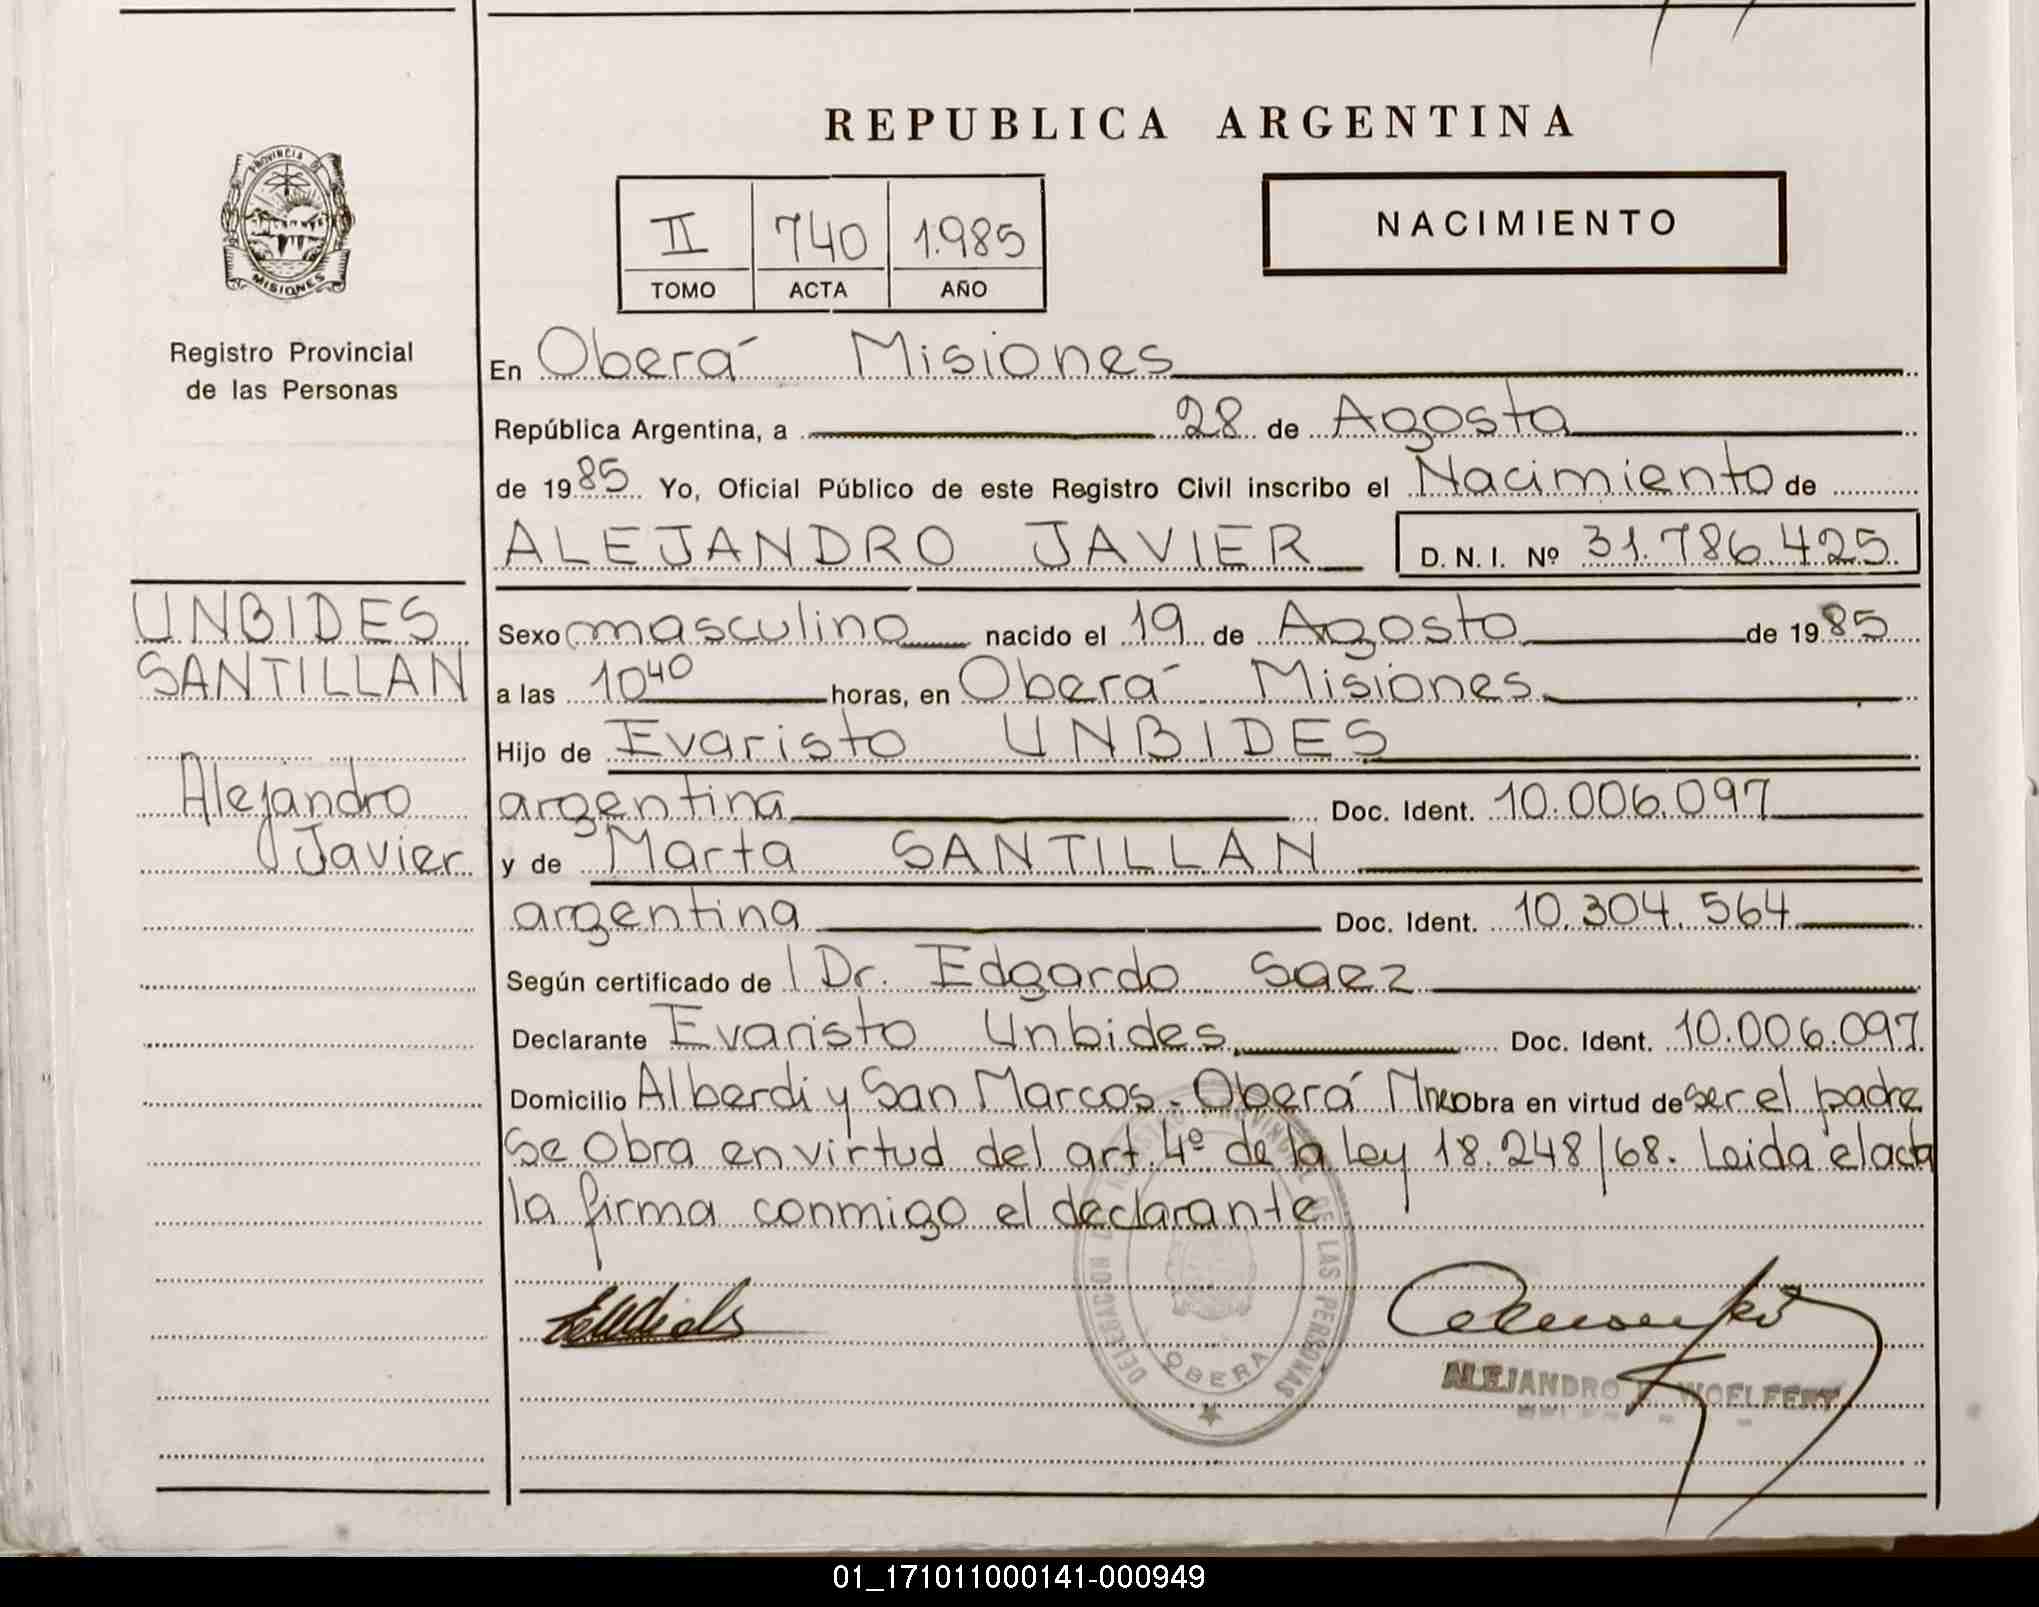 REPUBLICA ARGENTINA
PROVINCIA DE
MISIONES
II 740 1.985
TOMO ACTA AÑO
NACIMIENTO
Registro Provincial
de las Personas
UNBIDES
SANTILLAN
Alejandro
Javier
En Oberá Misiones
República Argentina, a 28 de Agosto
de 1985 Yo, Oficial Público de este Registro Civil inscribo el Nacimiento de
ALEJANDRO JAVIER D. N. I. Nº 31.786.425
Sexo masculino nacido el 19 de Agosto de 1985
a las 10 40 horas, en Oberá Misiones
Hijo de Evaristo UNBIDES
argentina Doc. Ident. 10.006.097
y de Marta SANTILLAN
argentina Doc. Ident. 10.304.564
Según certificado de Dr. Edgardo Saez
Declarante Evaristo Unbides Doc. Ident. 10.006.097
Domicilio Alberdi y San Marcos - Oberá Mnes obra en virtud de ser el padre
Se Obra en virtud del art. 4º de la Ley 18.248/68. Leida el acta
la firma conmigo el declarante
DELEGACION DE LAS PERSONAS
OBERA
ALEJANDRO WOELFERT
01_171011000141-000949